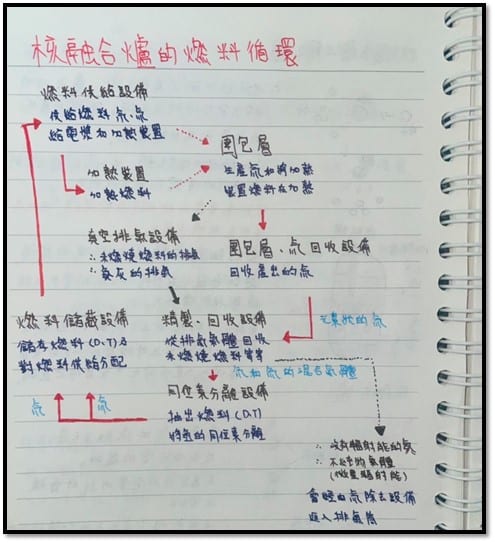 核融合爐的燃料循環
燃料供給設備
供給燃料氘、氚
給電漿和加熱裝置
加熱裝置
加熱燃料
圍包層
生產氚和將加熱
裝置燃料在加熱
真空排氣設備
∴未燃燒燃料的排氣
∴氦灰的排氣
圍包層、氚回收設備
回收產出的氚
燃料儲藏設備
儲存燃料(D、T)及
對燃料供給分配
精製、回收設備
從排氣氣體回收
未燃燒燃料等等
元素狀的氚
氘和氚的混合氣體
同位素分離設備
抽出燃料(D、T)
特氣的同位素分離
氘
氚
∴沒有輻射能的氦
∴不純物氣體
(微量輻射能)
會經由氚除去設備
進入排氣筒